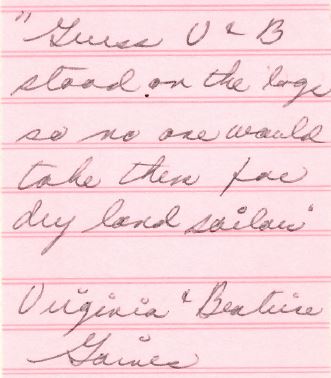 "Guess V & B
stood on the logs
so no one would
take them for
dry land sailors"
Virginia & Beatrice
Gaines